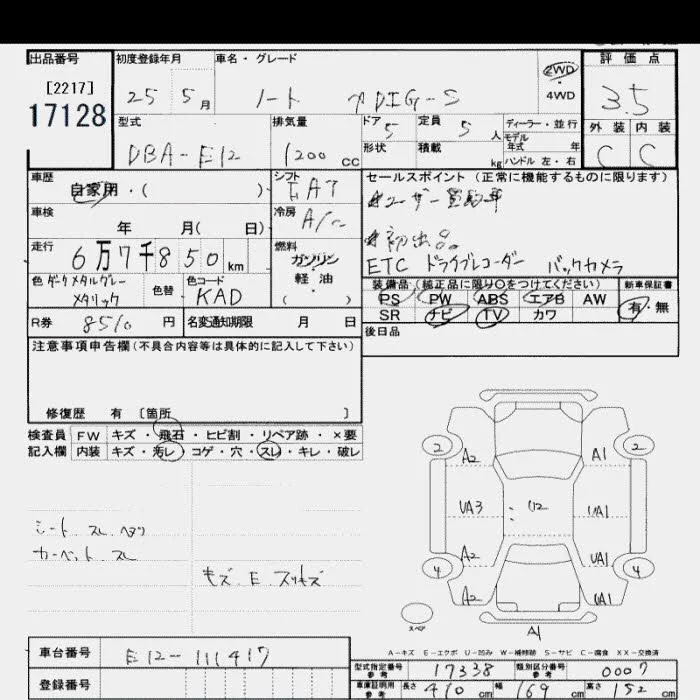 出品番号 初度登録年月 車名・グレード 2WD 評価点
[2217] 25 5月 ノート DIG-S 4WD 3.5
17128
型式 排気量 ドア 5 定員 5人 ディーラー・並行 外装 内装
モデル年式 年
DBA-E12 1200cc 形状 積載 kg ハンドル 左・右 C C
車歴 自家用・( ) シフト FAT セールスポイント (正常に機能するものに限ります)
★ユーザー買取車
車検 年 月( 日) 冷房 A/C
★初出品
走行 6万7千850km 燃料 ガソリン・軽油・( )
ETC ドライブレコーダー バックカメラ
色 ダークメタルグレーメタリック 色替 色コード KAD
装備品 (純正品に限り○をつけてください) 新車保証書
PS PW ABS エアB AW 有・無
SR ナビ TV カワ
R券 8510円 名変通知期限 月 日
後日品
注意事項申告欄(不具合内容等は具体的に記入して下さい)
修復歴 有 [箇所 ]
検査員 FW キズ・飛石・ヒビ割・リペア跡・×要
記入欄 内装 キズ・汚レ・コゲ・穴・スレ・キレ・破レ
2 A2 A1 2
UA3 U2 UA1
A2 UA1
4 A2 UA1 4
シート スレ ヘタリ
カーペット スレ
キズ E スリキズ
スペア A1
A-キズ E-エクボ U-凹み W-補修跡 S-サビ C-腐食 XX-交換済
車台番号 E12-111417
型式指定番号 参考 17338 類別区分番号 参考 0007
登録番号
車庫証明用 参考 長さ 410cm 幅 169cm 高さ 152cm